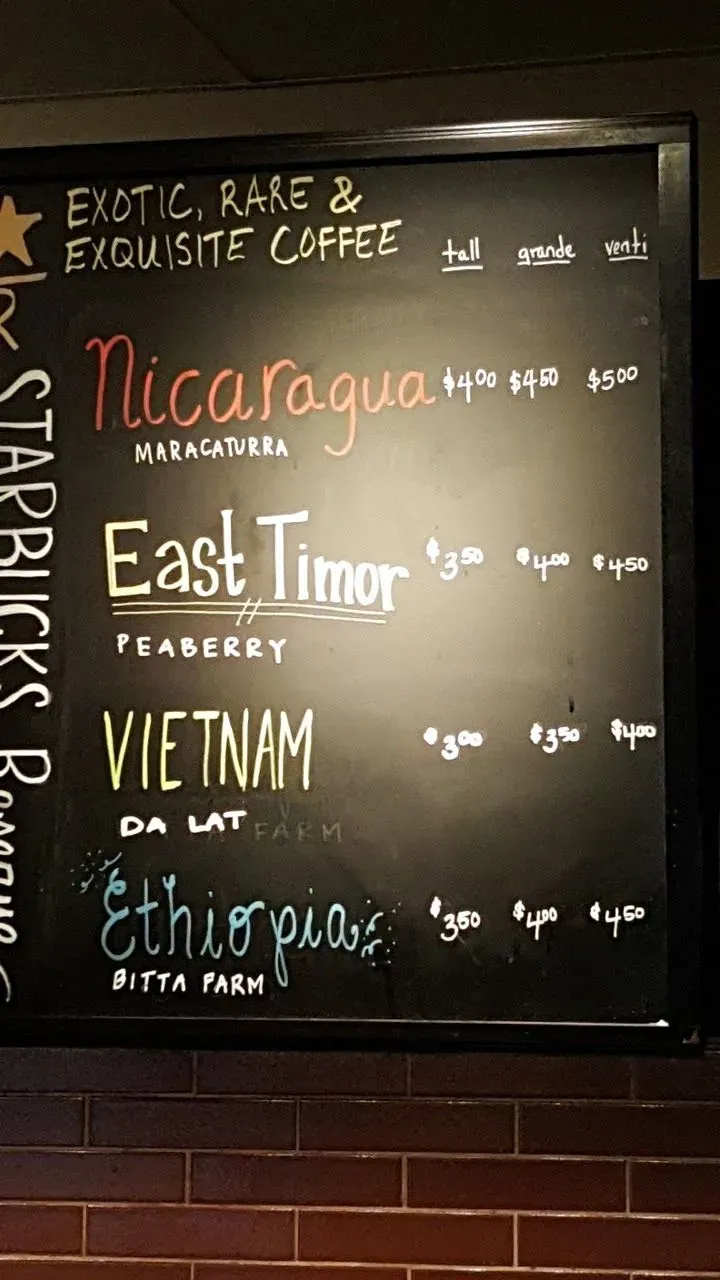 EXOTIC, RARE &
EXQUISITE COFFEE
tall grande venti
Nicaragua $4.00 $4.50 $5.00
MARACATURRA
East Timor $3.50 $4.00 $4.50
PEABERRY
VIETNAM $3.00 $3.50 $4.00
DA LAT FARM
Ethiopia $3.50 $4.00 $4.50
BITTA FARM
STARBUCKS